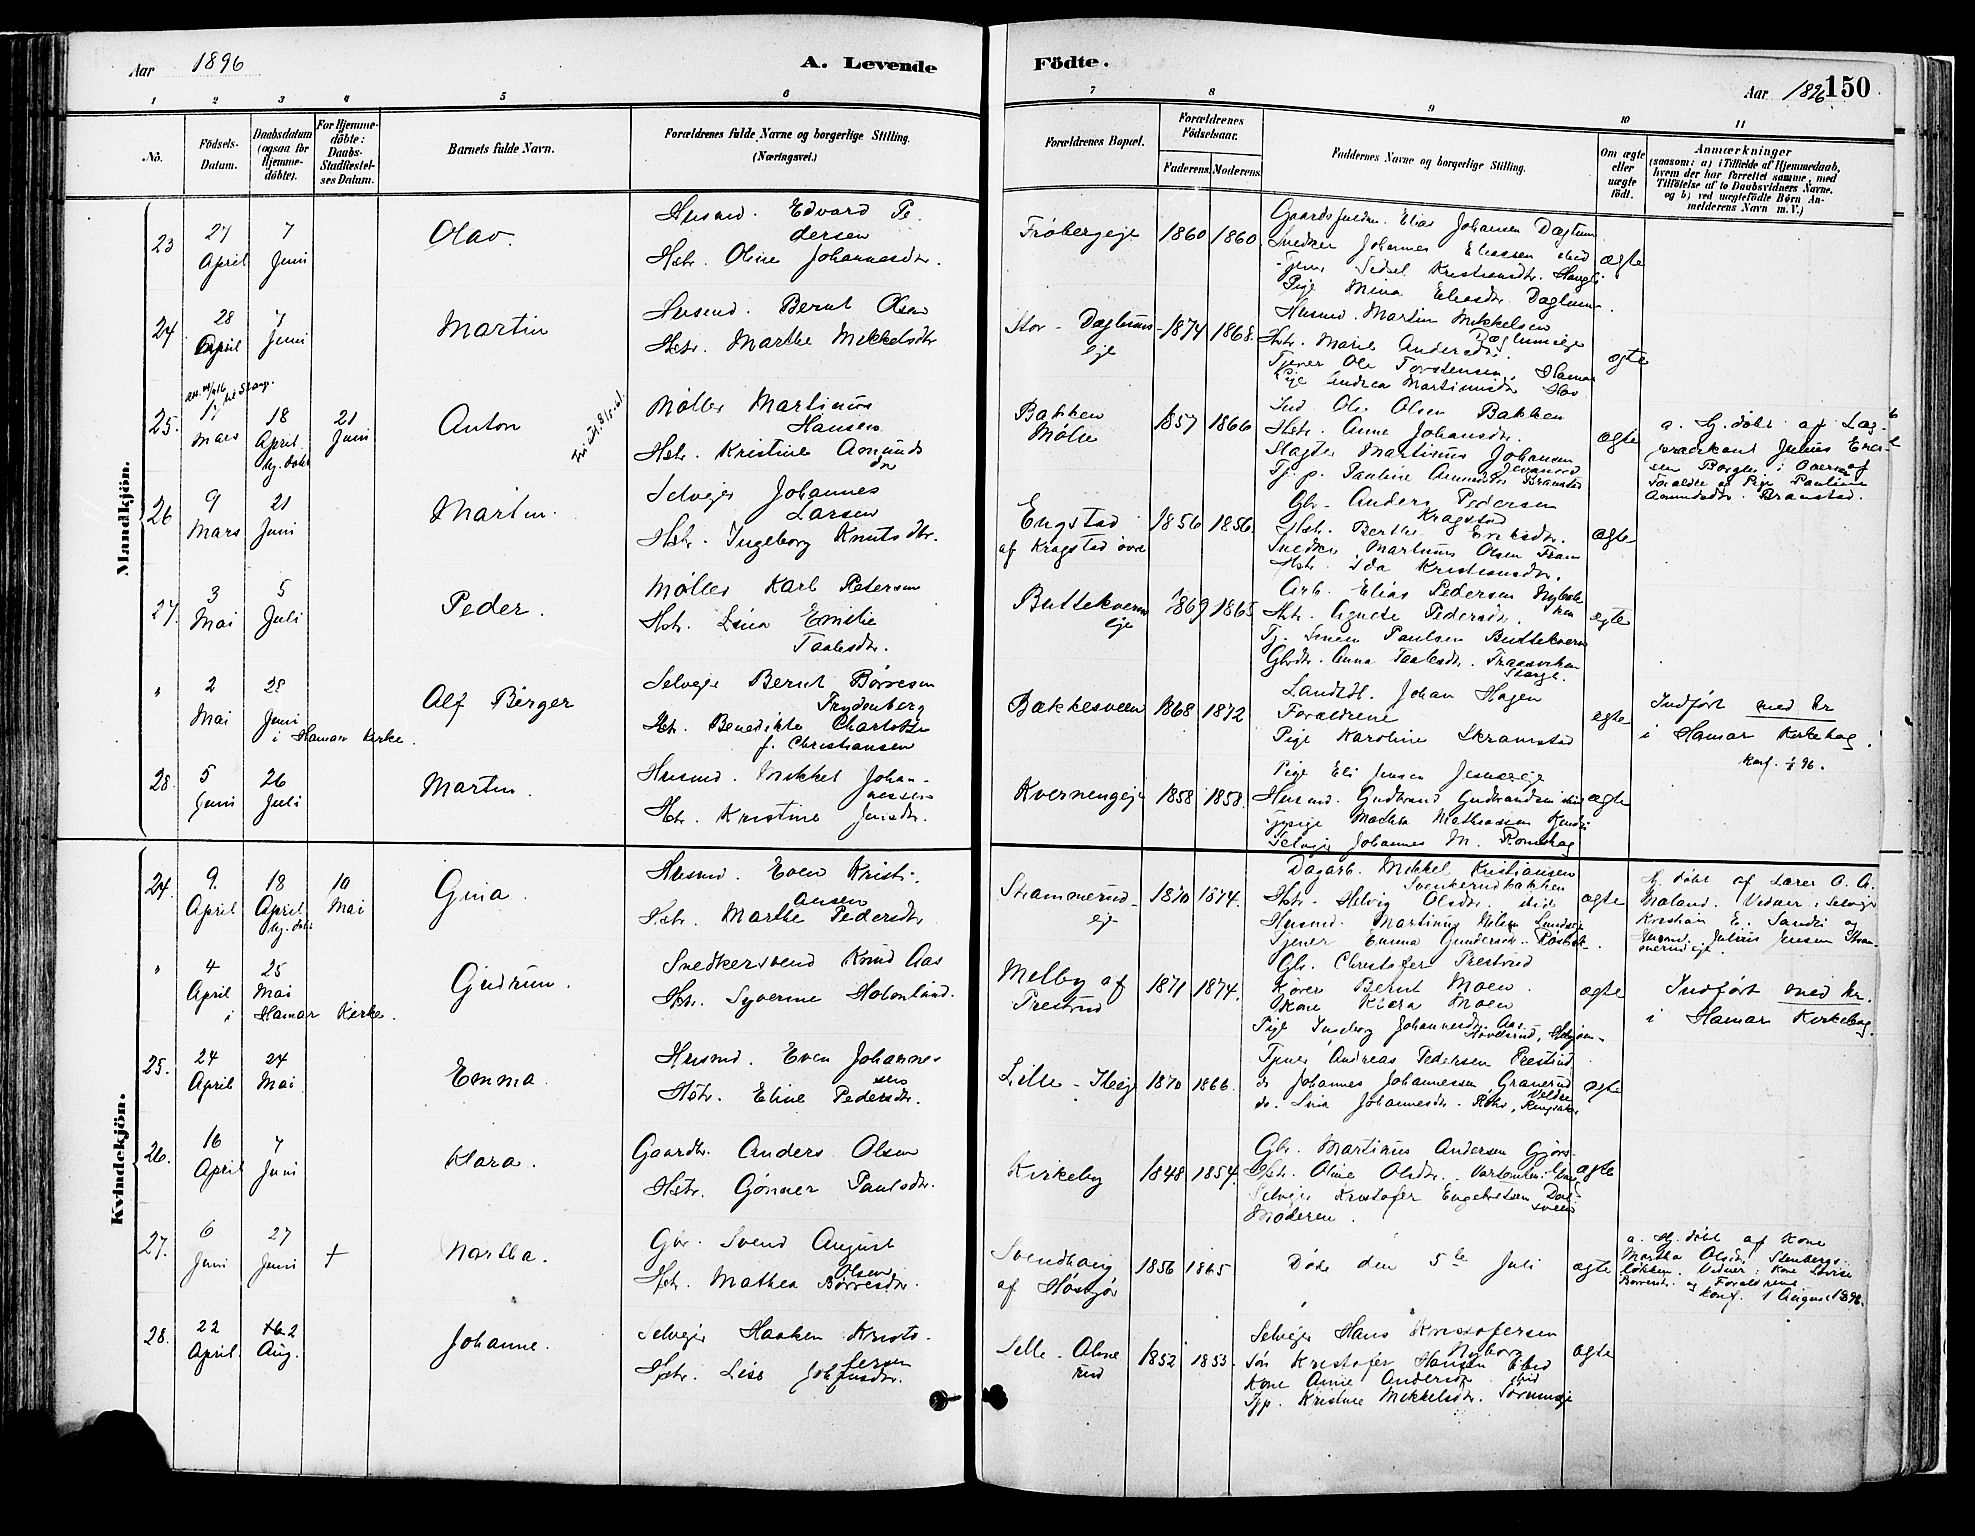 Aar 1896
A. Levende
Födte.
Aar 1896
150
1 2 3 4 5 6 7 8 9 10 11
No.
Födsels-
Datum.
Daabsdatum
(ogsaa for
Hjemme-
döbte).
For Hjemme-
döbte:
Daabs-
Stadfæstel-
ses Datum.
Barnets fulde Navn.
Forældrenes fulde Navne og borgerlige Stilling.
(Næringsvei.)
Forældrenes Bopæl.
Forældrenes
Födselsaar.
Faderens. Moderens.
Faddernes Navne og borgerlige Stilling.
Om ægte
eller
uægte
født.
Anmærkninger
(saasom: a) i Tilfælde af Hjemmedaab,
hvem der har forrettet samme, med
Tilföielse af to Daabsvidners Navne,
og b) ved uægtefödte Börn An-
melderens Navn m. V.)
Mandkjön.
23
27
April
7
Juni
Olav.
Husmd. Edvard Pe
dersen
Hstr. Oline Johannesdr.
Frøbergeje
1860 1860.
Elias Johansen Dæglum
Snedker Johannes Eliassen ibid
Sidsel Kristiansdr.
Pige Mina Eliasdr. Daglum
ægte
24
28
April
7
Juni
Martin
Husmd. Bernt Olsen
Hstr. Marthe Mikkelsdr
Stor-Dæglums-
eje
1874 1868.
Husmd. Martin Mikkelsen
Dæglumseje
Hstr. Marie Andersdr.
Tjener Ole Torstensen, Hamar
Pige Andrea Martinusdr
ægte
25.
Mars
18
April
hj. døbt
21
Juni
Anton
Møller Martinus
Hansen
Hstr. Kristine Amunds
dr
Bakken
Mølle
1857 1866
Ind. Ole Olsen Bakken
Hstr. Anne Johansdr.
Slagter Martinus Johansen
Tj. p. Pauline Amundsdr Bramstad
ægte
a. Hj. døbt af Læg-
prædikant Julius Ener-
sen
Forældre og Pige Pauline
Amundsdr. Bramstad.
26
9
Mars
21
Juni
Martin.
Selvejer Johannes
Larsen
Hstr. Ingeborg Knutsdtr.
Engstad
af Kragstad øvre
1856 1856.
Gbr. Anders Pedersen
Kragstad
Hstr. Berthe Eriksdr.
Snedker Martinus Olsen
Hstr. Ida Kristiansdr.
ægte
27.
3
Mai
5
Juli
Peder.
Møller Karl Petersen
Hstr. Lina Emilie
Taalesdr.
Buttekvern
eje
1869 1865
Arb. Elias Pedersen
Hstr. Agnete Pedersdr.
Tj. Simen Paulsen Buttekvern
Gbrdr. Anna Taalesdr.
Stange.
ægte
"
2
Mai
28
Juni
i Hamar Kirke.
Alf Birger
Selvejer Bernt Børresen
Frydenberg
Hst. Benedikte Charlotte
f. Christiansen
Bækkesveen
1868 1872
Landhdl. Johan Hagen
Forældrene
Pige Karoline Skramstad
ægte
Indført med Nr
i Hamar Kirkebog.
28.
5
Juni
26
Juli
Martin.
Husmd. Mikkel Johan-
nessen
Hstr. Kristine Jensdr.
Kvernengeje
1858 1858.
Pige Eli Jensen
Husmd. Gudbrand Gudbrandsen ibid
Mathea Mathiasen
Selvejer Johannes M.
ægte
Kvindekjön.
24.
9.
April
18
April
hj. døbt
10
Mai
Gina.
Husmd. Even Kristi-
ansen
Hstr. Marthe Pedersdr
Strammerud-
eje
1870 1874.
Dagarb. Mikkel Kristiansen
Svenkerudbakken
Hstr. Helvig Olsdr. ibid
Husmd. Martinus Nilsen
Tjener Emma Gundersdr.
ægte
Hj. døbt af Lærer O. A.
Moland. Vidner: Selvejr
Kristian E. Sandli og
Husmd. Julius Jensen Stram-
merudeje.
"
4
April
25
Mai
i Hamar Kirke.
Gudrun.
Snedkersvend Knud Aas
Hstr. Syverine Hobenland.
Melby af
Prestrud
1871 1874.
Gbr. Christofer Prestrud
Kører Bernt Moen
Kone Klara Moen
Pige Ingeborg Johannesdr. Aas
ægte
Indført med Nr.
i Hamar Kirkebog.
25.
24
April
24
Mai
Emma.
Husmd. Even Johannes
sen
Hstr. Eline Pedersdr.
Lille-
1870 1866.
Tjener Andreas Pedersen Prestrud
do Johannes Johannessen Granerud
do. Lina Johannesdr.
ægte
26.
16
April
7
Juni
Klara.
Gaardbr. Anders Olsen
Hstr. Gønner Paulsdr.
Kirkeby
1848 1854.
Gbr. Martinus Andersen
Hstr. Oline Olsdtr.
Selvejer Kristofer Engebretsen
Moderen.
ægte
27.
6
Juni
27
Juni
+
Martha.
Gbr. Svend August
Olsen
Hstr. Mathea Børresdr.
Svendhaug
af Høstsjø
1856 1865
Døde den 5te Juli
ægte
a. Hj. døbt af Kone
Martha Olsdr. Stenbergs-
løkken. Vidner: Kone Lovise
Børresdr. og Forældrene
Konf. 1 August 1896.
28.
22
April.
2
Aug.
Johanne.
Selvejer Haaken Kristo-
fersen
Hstr. Lise
Lille-
rud
1852 1853.
Selvejer Hans Kristofersen
Nyborg
Søn Kristofer Hansen ibid
Kone Anne Andersdr. ibid
Tjp. Kristine Mikkelsdr.
ægte